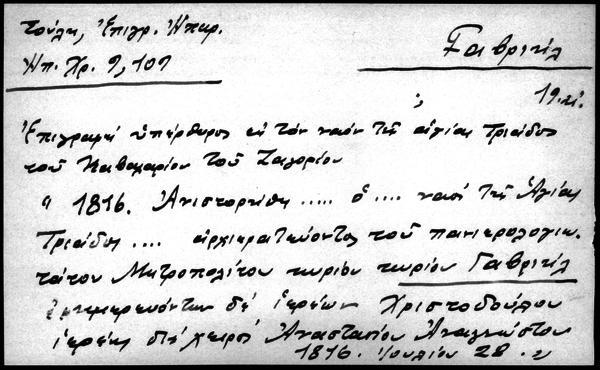 Σούλη, Ἐπιγρ. Ἠπειρ.
Ἠπ. Χρ. 9, 109
Γαβριήλ
19. αἰ.
Ἐπιγραφή ὑπέρθυρος εἰς τόν ναόν τῆς ἁγίας Τριάδος
τοῦ Καβαλαρίου τοῦ Ζαγορίου
" 1816. Ἀνιστορήθη ..... ὁ .... ναός τῆς Ἁγίας
Τριάδος .... ἀρχιερατεύοντος τοῦ πανιερολογιω-
τάτου Μητροπολίτου κυρίου κυρίου Γαβριήλ
ἐφημερευόντων δέ ἱερέων Χριστοδούλου
ἱερέως διά χειρός Ἀναστασίου Ἀναγνώστου
1816. Ἰουλίου 28. "